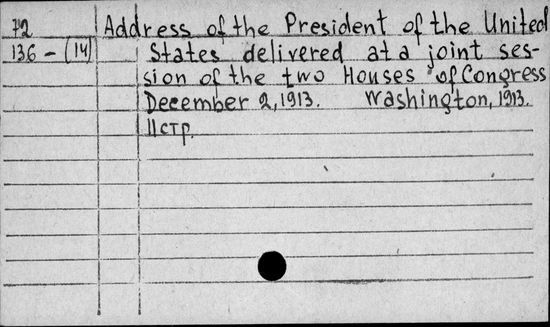 72 Address of the President of the United
136-(14) States delivered at a joint ses-
sion of the two Houses of Congress
December 2, 1913. Washington, 1913.
11 стр.